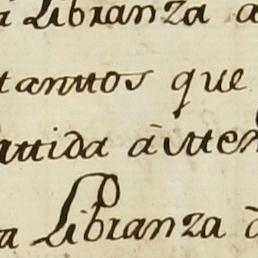 Libranza a
tanttos que
attida à itten
a Libranza